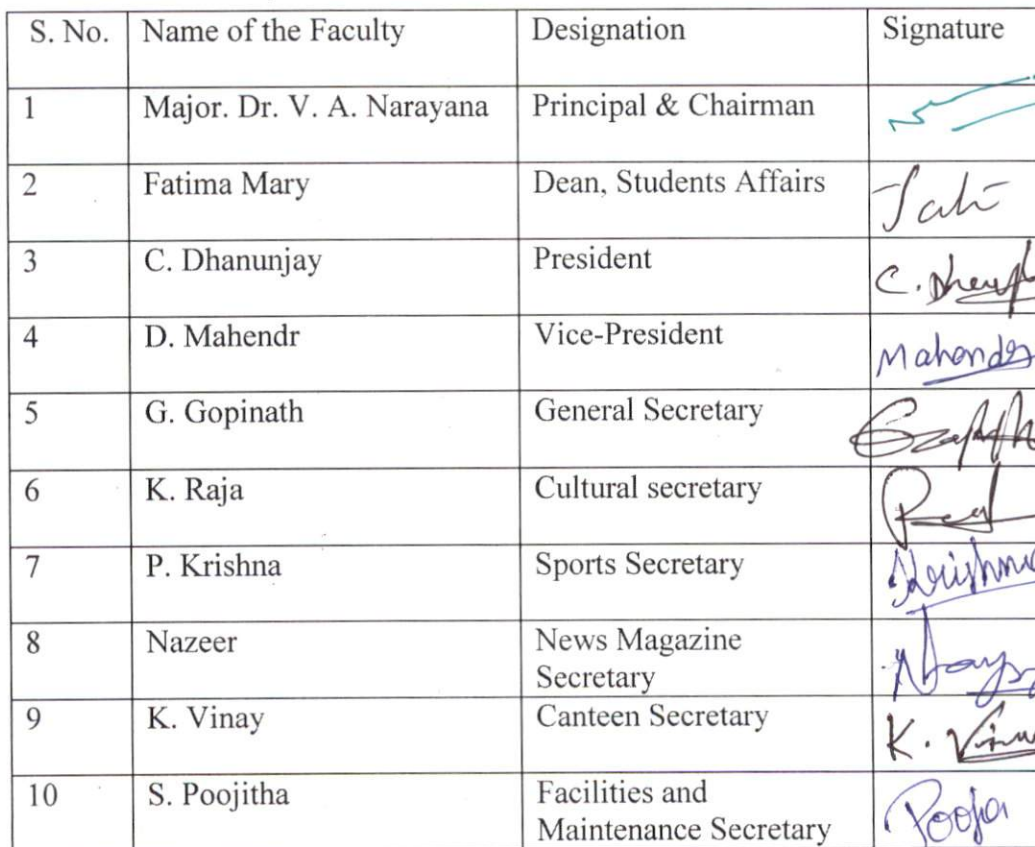 S. No. Name of the Faculty Designation Signature
1 Major. Dr. V. A. Narayana Principal & Chairman
2 Fatima Mary Dean, Students Affairs
3 C. Dhanunjay President C.
4 D. Mahendr Vice-President
5 G. Gopinath General Secretary
6 K. Raja Cultural secretary
7 P. Krishna Sports Secretary Krishna
8 Nazeer News Magazine
Secretary
9 K. Vinay Canteen Secretary K.
10 S. Poojitha Facilities and Pooja
Maintenance Secretary